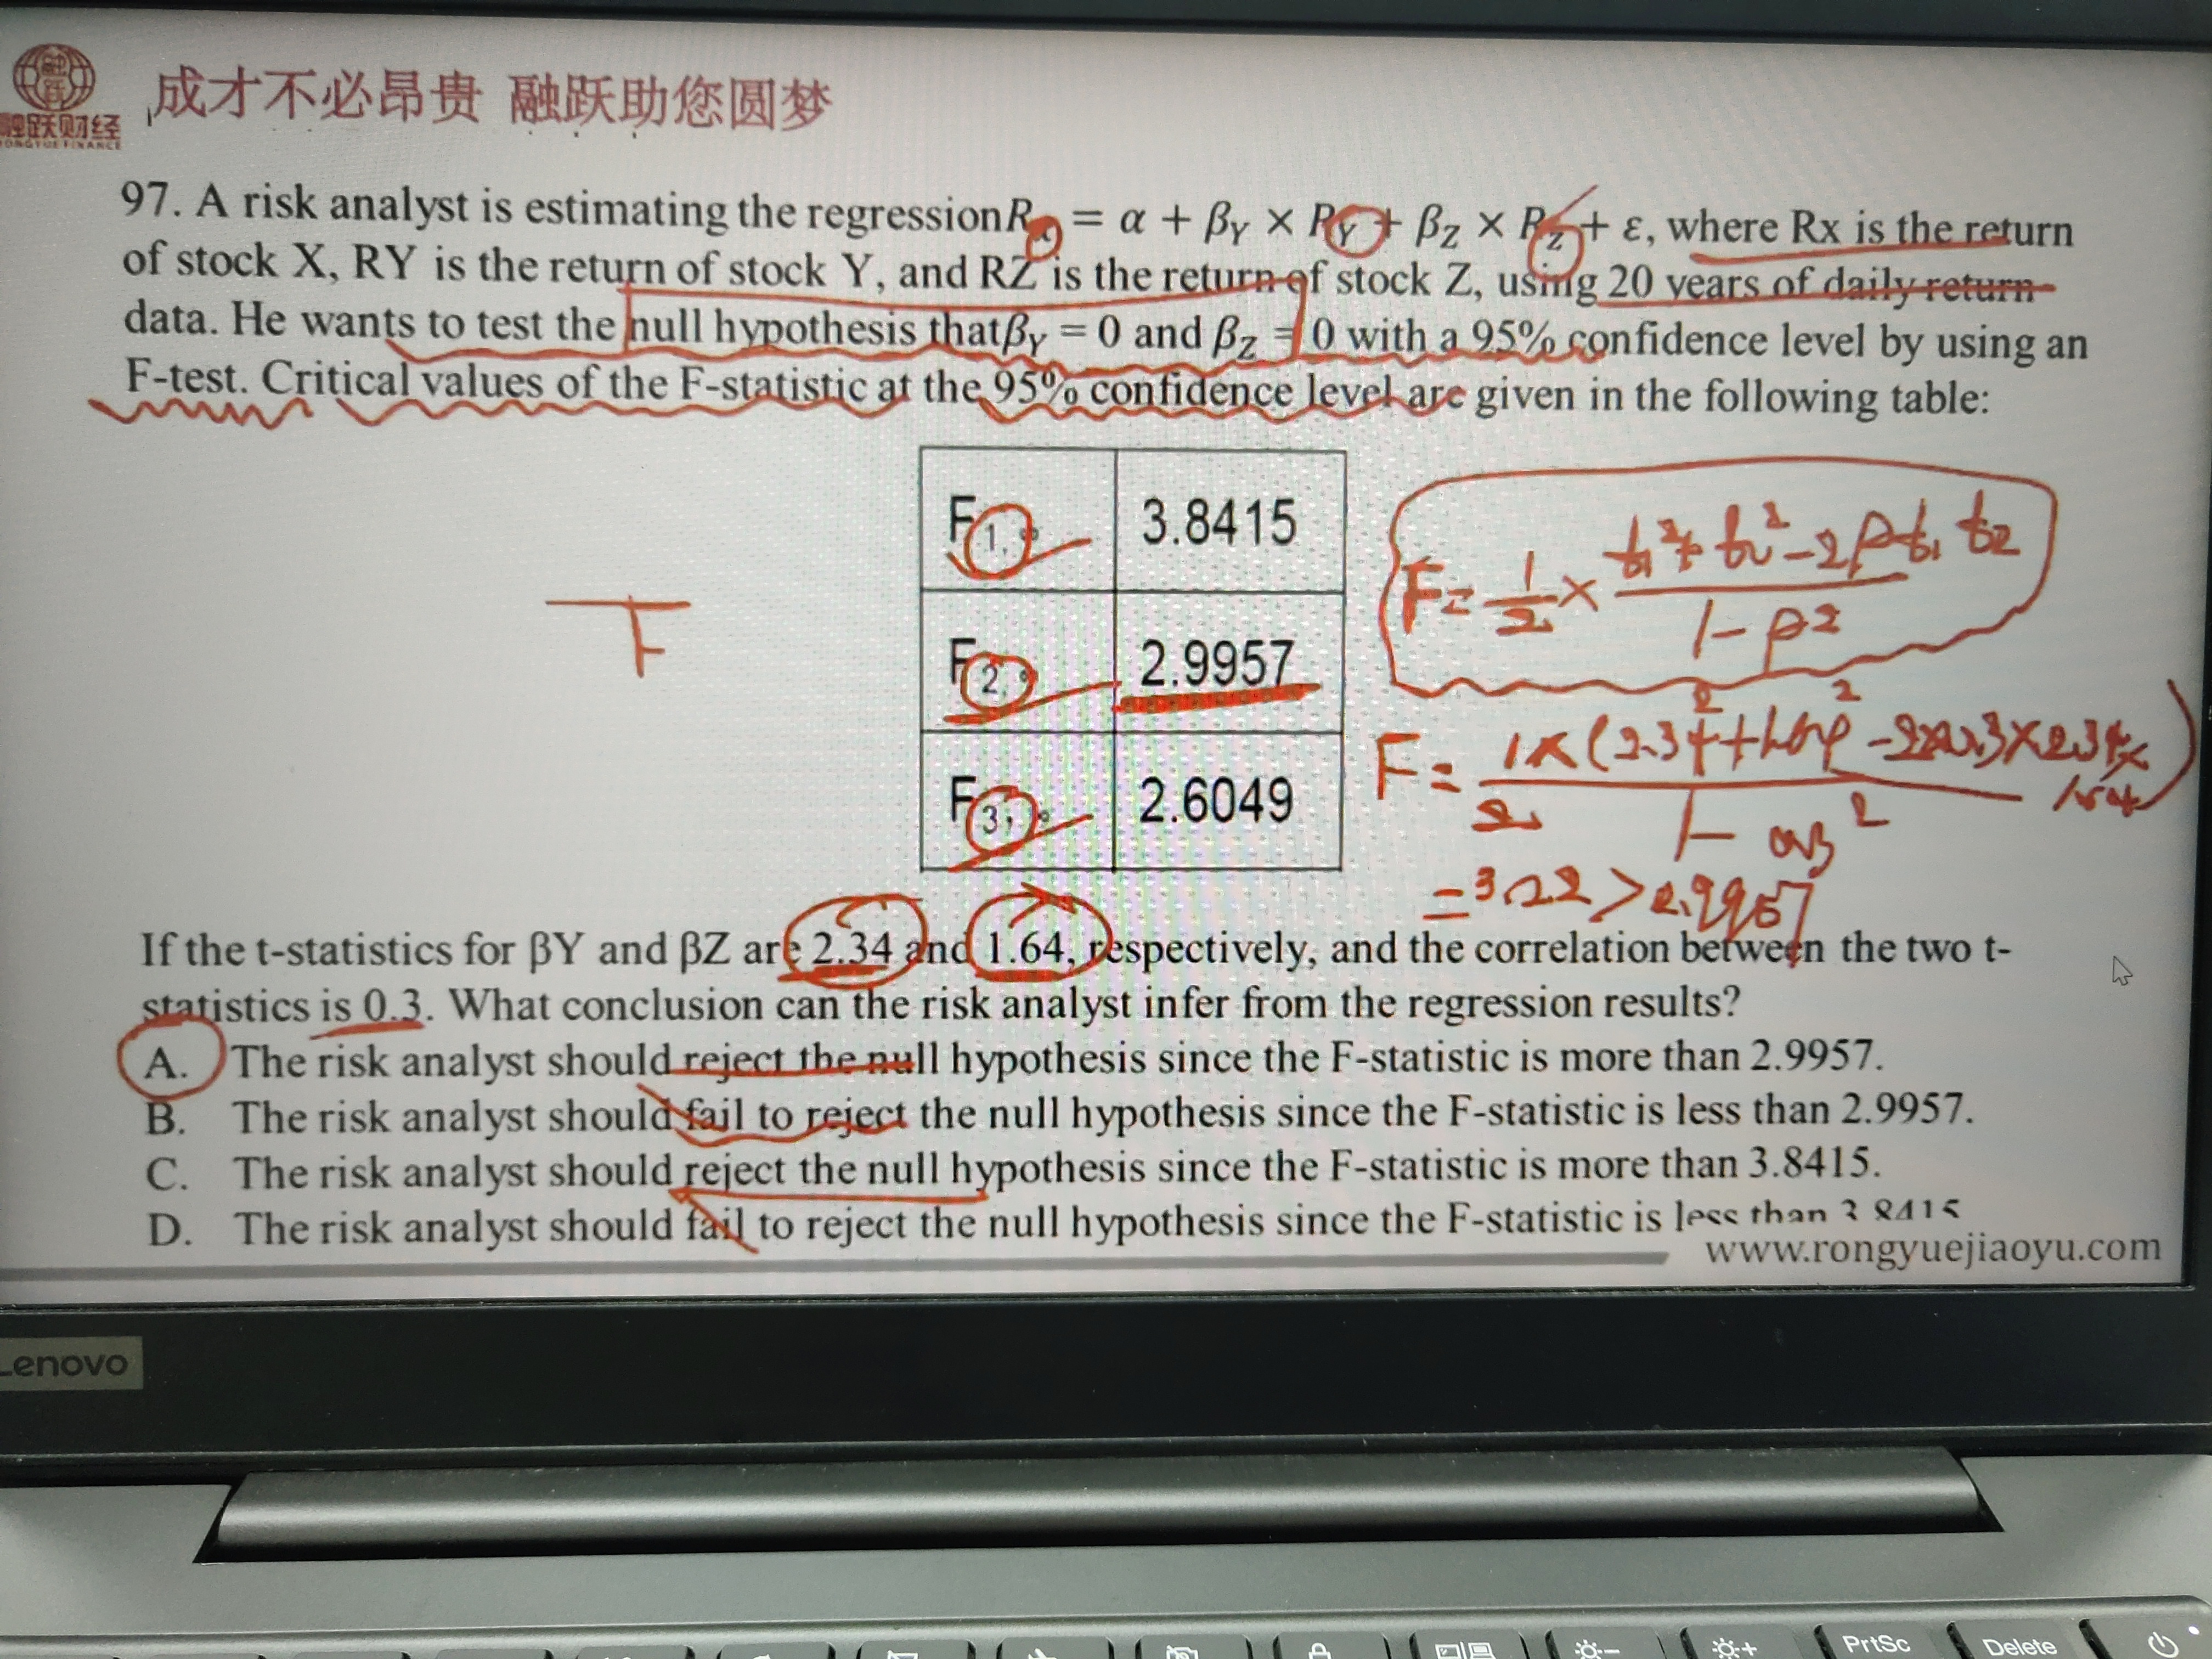 融跃财经
RONGYUE FINANCE
成才不必昂贵 融跃助您圆梦
97. A risk analyst is estimating the regressionRx = α + βY × RY + βZ × RZ + ε, where Rx is the return
of stock X, RY is the return of stock Y, and RZ is the return of stock Z, using 20 years of daily return
data. He wants to test the null hypothesis thatβY = 0 and βZ = 0 with a 95% confidence level by using an
F-test. Critical values of the F-statistic at the 95% confidence level are given in the following table:
F1,∞ 3.8415
F2,∞ 2.9957
F3,∞ 2.6049
F
F= 1/2 × t1²+t2²-2ρt1t2
1-ρ²
=3.22>2.9957
If the t-statistics for βY and βZ are 2.34 and 1.64, respectively, and the correlation between the two t-
statistics is 0.3. What conclusion can the risk analyst infer from the regression results?
A. The risk analyst should reject the null hypothesis since the F-statistic is more than 2.9957.
B. The risk analyst should fail to reject the null hypothesis since the F-statistic is less than 2.9957.
C. The risk analyst should reject the null hypothesis since the F-statistic is more than 3.8415.
D. The risk analyst should fail to reject the null hypothesis since the F-statistic is less than 3.8415
www.rongyuejiaoyu.com
Lenovo
PrtSc
Delete